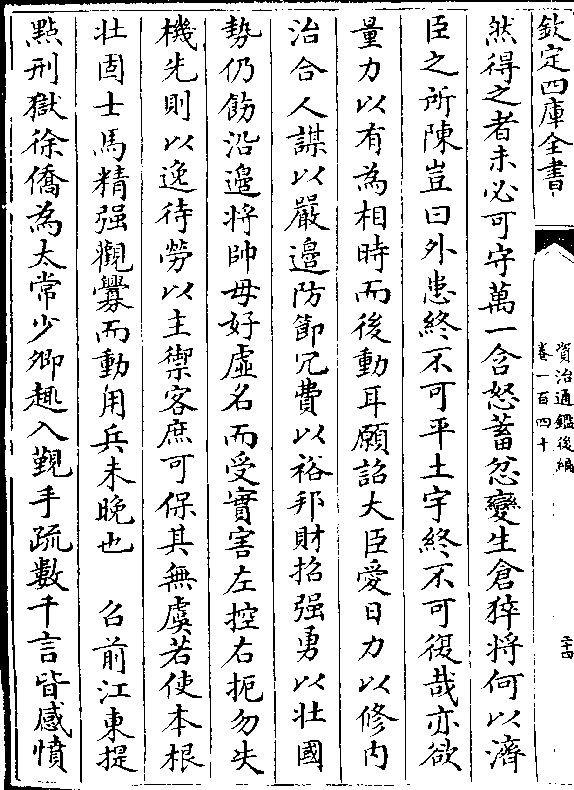 欽定四庫全書
資治通鑑後編
卷一百四十
二十四
然得之者未必可守萬一含怒蓄忿變生倉猝將何以濟
臣之所陳豈曰外患終不可平土宇終不可復哉亦欲
量力以有為相時而後動耳願詔大臣愛日力以修内
治合人謀以嚴邉防節冗費以裕邦財招强勇以壯國
勢仍飭沿邉將帥毋好虛名而受實害左控右扼勿失
機先則以逸待勞以主禦客庶可保其無虞若使本根
壯固士馬精强觀釁而動用兵未晚也　召前江東提
點刑獄徐僑為太常少卿趣入覲手疏數千言皆感憤